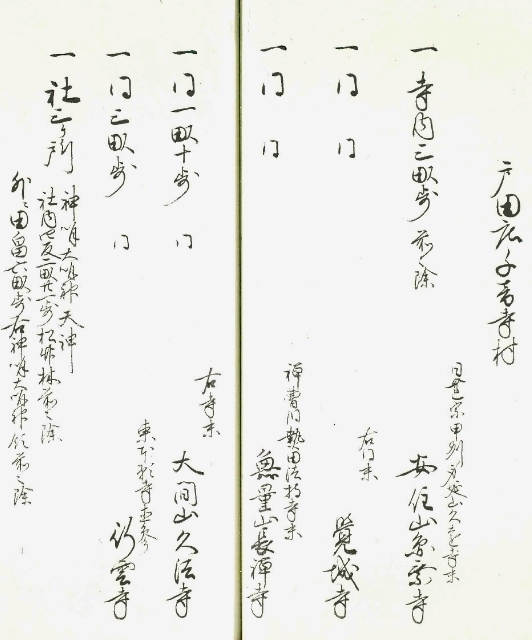 戸田庄千音寺村
一 寺内三畝歩 前々除
日蓮宗甲州身延山久遠寺末
安住山 寺
一 同 同
右同末
覚城寺
一 同 同
禅曹洞熱田法持寺末
無量山長禅寺
一 同一畝十歩 同
右寺末
大同山久法寺
一 同三畝歩 同
東本願寺直参
行雲寺
一 社三ケ所
神明 大明神 天神
社内 反二畝廿 歩松林 前々除
外ニ田畠六畝歩右神明大明神領前々除